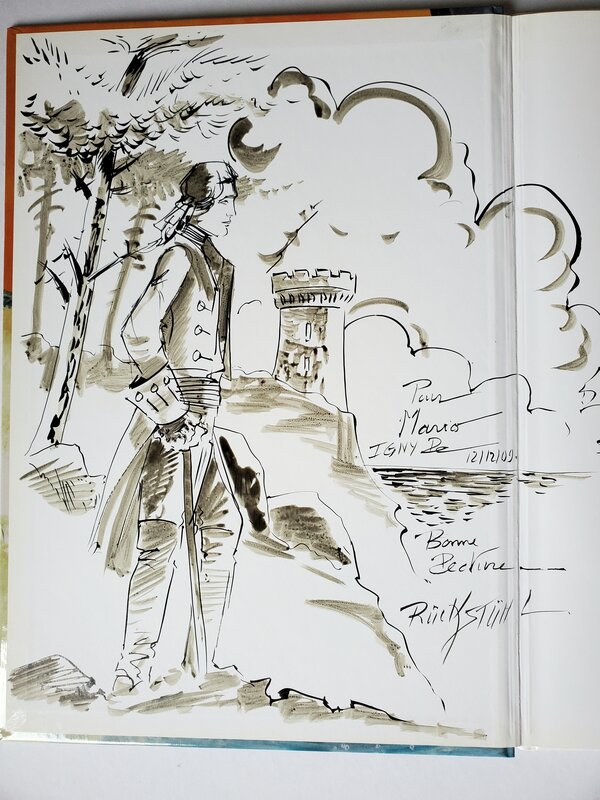 Pour
Mario
IGNY Le
12/12/09.
Bonne
Lecture
RückstüHL